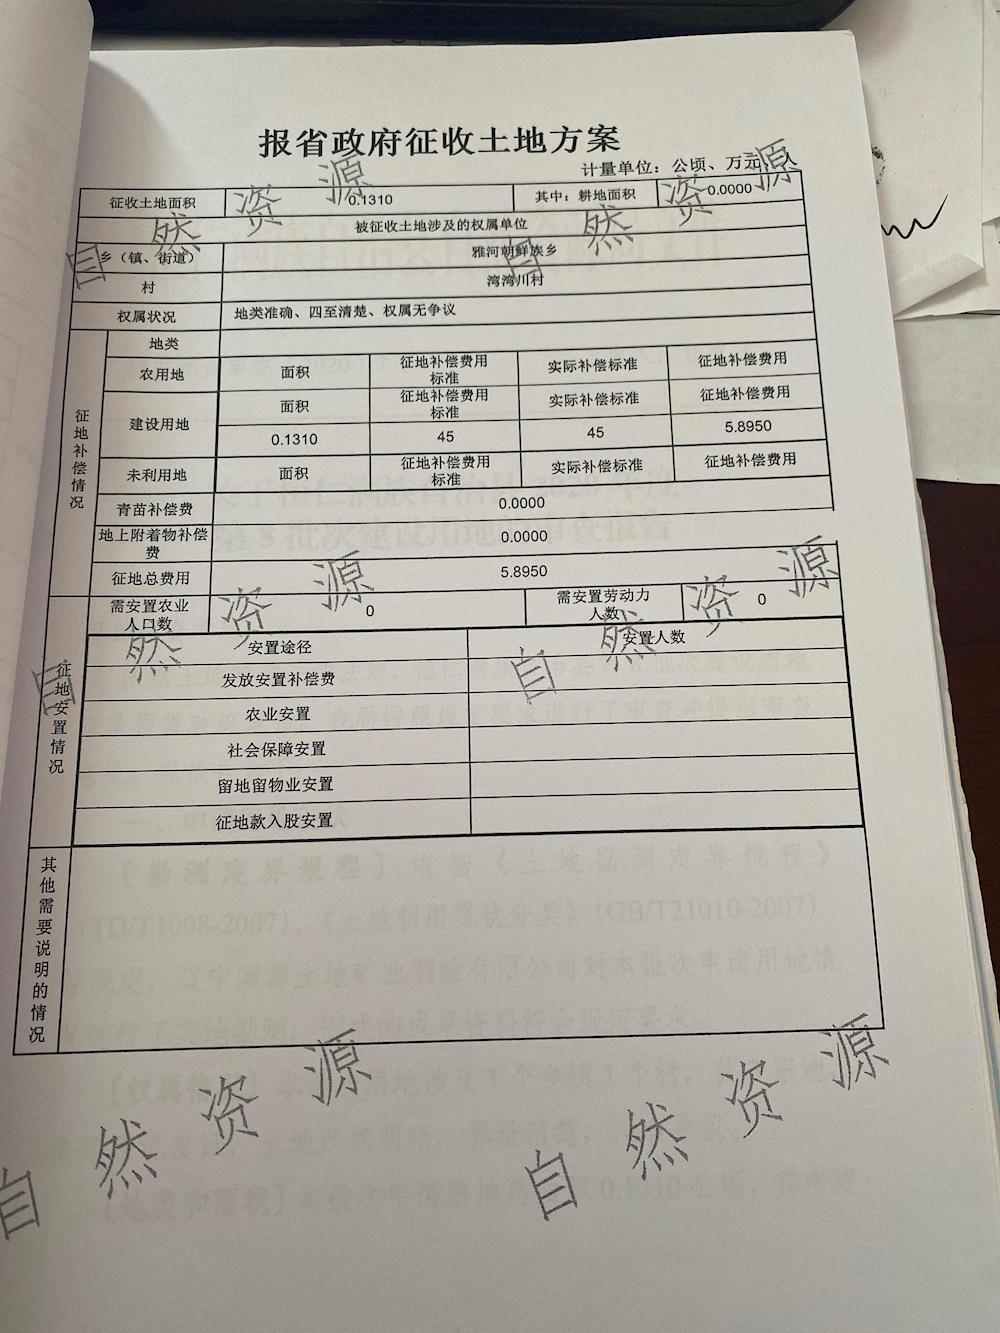 报省政府征收土地方案
计量单位：公顷、万元、人
征收土地面积 0.1310 其中：耕地面积 0.0000
被征收土地涉及的权属单位
乡（镇、街道） 雅河朝鲜族乡
村 湾湾川村
权属状况 地类准确、四至清楚、权属无争议
征地补偿情况
地类
农用地 面积 征地补偿费用标准 实际补偿标准 征地补偿费用
建设用地 面积 征地补偿费用标准 实际补偿标准 征地补偿费用
0.1310 45 45 5.8950
未利用地 面积 征地补偿费用标准 实际补偿标准 征地补偿费用
青苗补偿费 0.0000
地上附着物补偿费 0.0000
征地总费用 5.8950
征地安置情况
需安置农业人口数 0 需安置劳动力人数 0
安置途径 安置人数
发放安置补偿费
农业安置
社会保障安置
留地留物业安置
征地款入股安置
其他需要说明的情况
自然资源
自然资源
自然资源
自然资源
自然资源
自然资源